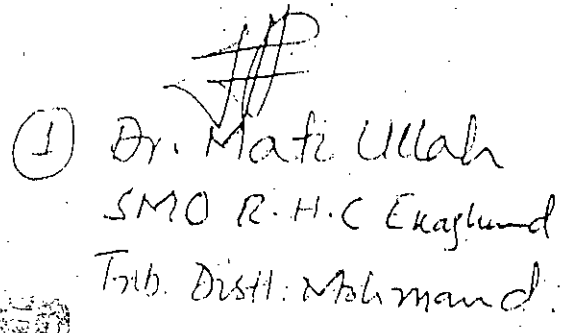 ① Dr. Mati Ullah
SMO R.H.C Ekaghund
Trib. Distt: Mohmand.